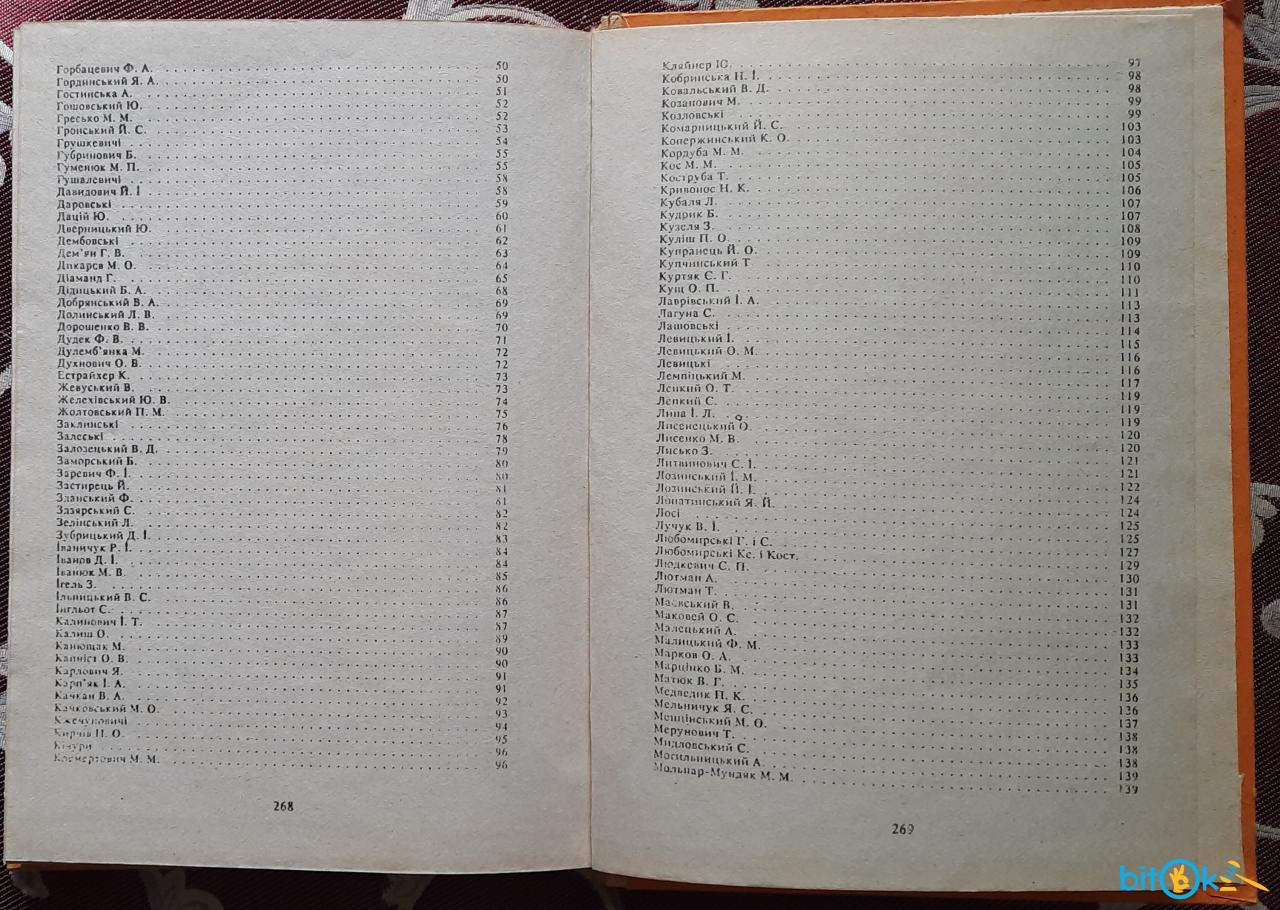 Горбацевич Ф. А. 50
Гординський Я. А. 50
Гостинська А. 51
Гошовський Ю. 52
Гресько М. М. 52
Гронський Й. С. 53
Грушкевичі 54
Губринович Б. 55
Гуменюк М. П. 55
Гушалевичі 58
Давидович Й. І 58
Даровські 59
Дацій Ю. 60
Дверницький Ю. 61
Дембовські 62
Дем'ян Г. В. 63
Дикарєв М. О. 64
Діаманд Г. 65
Дідицький Б. А. 68
Добрянський В. А. 69
Долинський Л. В. 69
Дорошенко В. В. 70
Дудек Ф. В. 71
Дулемб'янка М. 72
Духнович О. В. 72
Естрайхер К. 73
Жевуський В. 73
Желехівський Ю. В. 74
Жолтовський П. М. 75
Заклинські 76
Залеські 78
Залозецький В. Д. 79
Заморський Б. 80
Заревич Ф. І. 80
Застирець Й. 81
Зданський Ф. 81
Здзярський С. 82
Зелінський Л. 82
Зубрицький Д. І. 83
Іваничук Р. І. 84
Іванов Д. І. 84
Іванюк М. В. 85
Ігель З. 86
Ільницький В. С. 86
Інгльот С. 87
Калинович І. Т. 87
Калиш О. 89
Канюшак М. 90
Капніст О. В. 90
Карлович Я. 91
Карп'як І. А. 91
Качкан В. А. 92
Качковський М. О. 93
Кжечуновичі 94
Кирчів П. О. 95
Кічури 96
Клемертович М. М. 96
268
Кляйнер Ю. 97
Кобринська Н. І. 98
Ковальський В. Д. 98
Козанович М. 99
Козловські 99
Комарницький Й. С. 103
Копержинський К. О. 103
Кордуба М. М. 104
Кос М. М. 105
Коструба Т. 105
Кривонос Н. К. 106
Кубаля Л. 107
Кудрик Б. 107
Кузеля З. 108
Куліш П. О. 109
Купранець Й. О. 109
Купчинський Т. 110
Куртяк Є. Г. 110
Кущ О. П. 111
Лаврівський І. А. 113
Лагуна С. 113
Лашовські 114
Левицький І. 115
Левицький О. М. 116
Левицькі 116
Лемпіцький М. 117
Лепкий О. Т. 119
Лепкий С. 119
Липа І. Л. 119
Лисенецький О. 120
Лисенко М. В. 120
Лисько З. 121
Литвинович С. І. 121
Лозинський І. М. 122
Лозинський Й. І. 124
Лопатинський Я. Й. 124
Лосі 125
Лучук В. І. 125
Любомирські Г. і С. 127
Любомирські Кс. і Кост. 129
Людкевич С. П. 130
Лютман А. 131
Лютман Т. 131
Маєвський В. 132
Маковей О. С. 132
Малецький А. 133
Малицький Ф. М. 133
Марков О. А. 134
Марцінко Б. М. 135
Матюк В. Г. 136
Медведик П. К. 136
Мельничук Я. С. 137
Менцінський М. О. 138
Мерунович Т. 138
Мидловський С. 138
Могильницький А. 139
Мольнар-Мундяк М. М. 139
269
bitOk